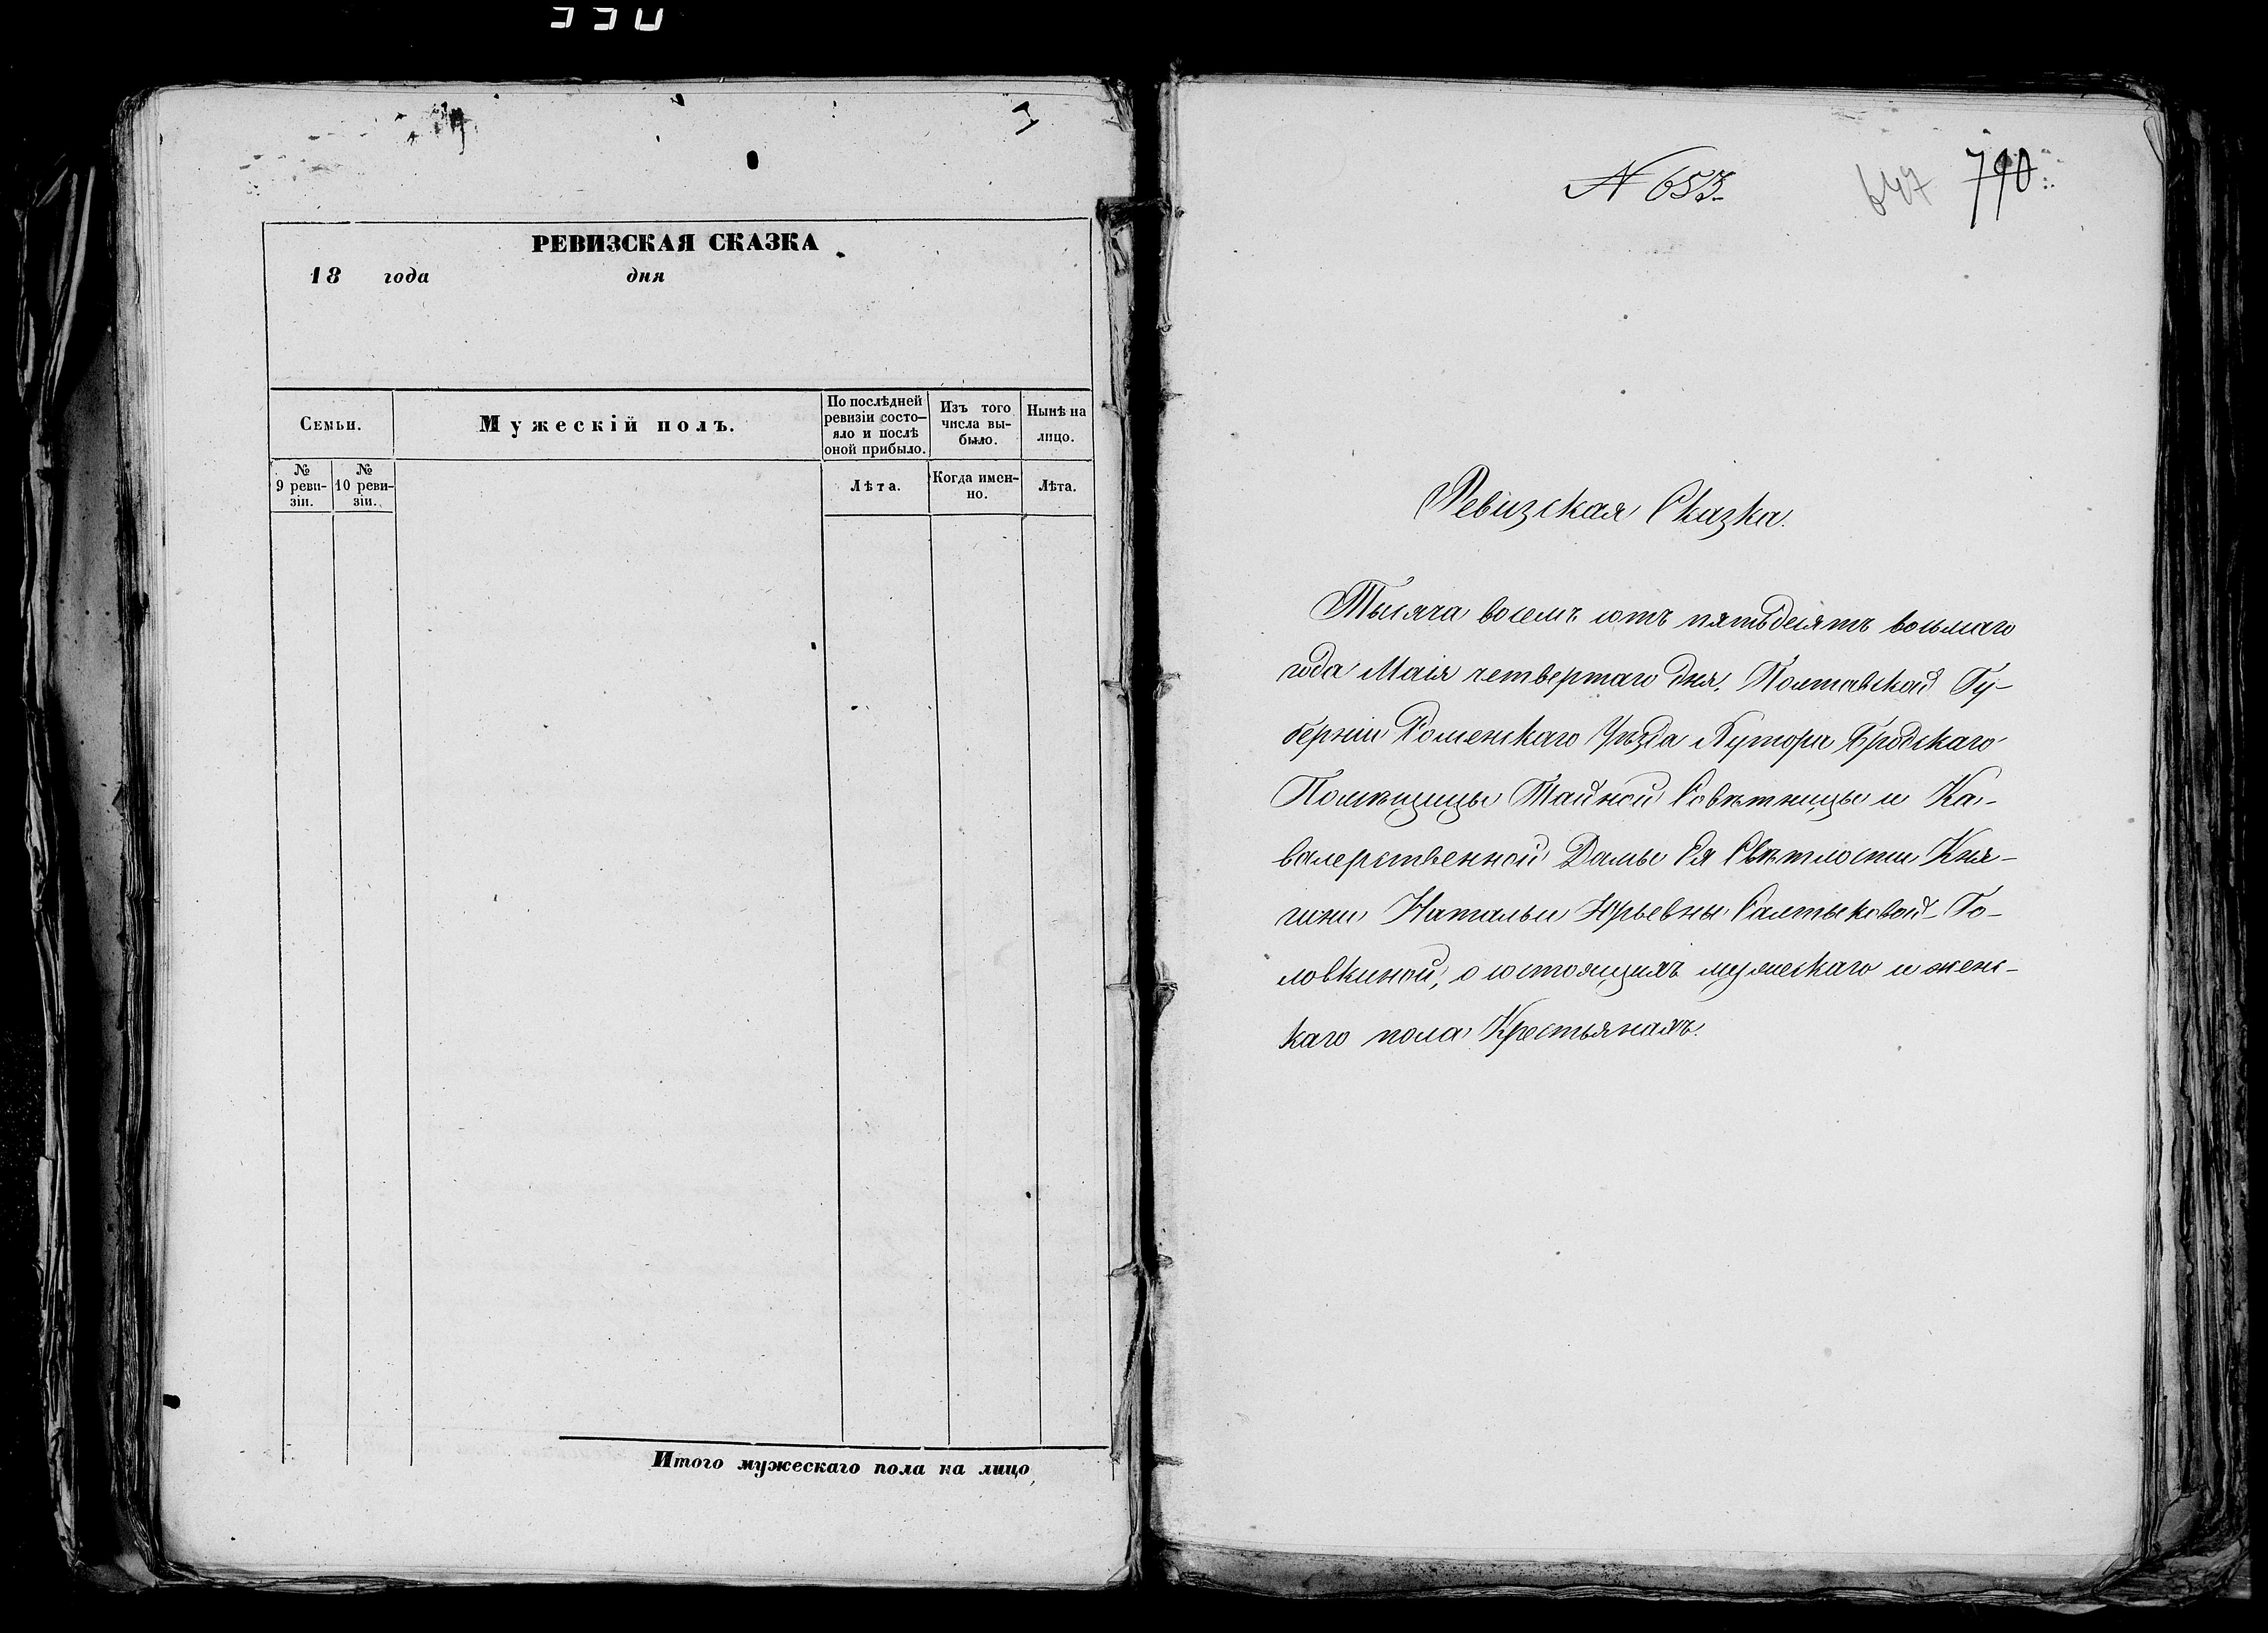 РЕВИЗСКАЯ СКАЗКА
18 года дня
Семьи.
Мужескій полъ.
По послѣдней
ревизіи состо-
яло и послѣ
оной прибыло.
Изъ того
числа вы-
было.
Нынѣ на
лицо.
№
9 реви-
зіи.
№
10 реви-
зіи.
Лѣта.
Когда имен-
но.
Лѣта.
Итого мужескаго пола на лицо
N 653.
647 790
Ревизская Сказка.
Тысяча восемъ сотъ пятьдесятъ восьмаго
года Маія четвертаго дня, Полтавской Гу-
берніи Роменскаго Уѣзда Хутора Бродскаго
Помѣщицы Тайной Совѣтницы и Ка-
валерственной Дамы Ея Свѣтлости Кня-
гини Натальи Юрьевны Салтыковой-Го-
ловкиной, о состоящихъ мужескаго и женс-
каго пола Крестьянахъ.